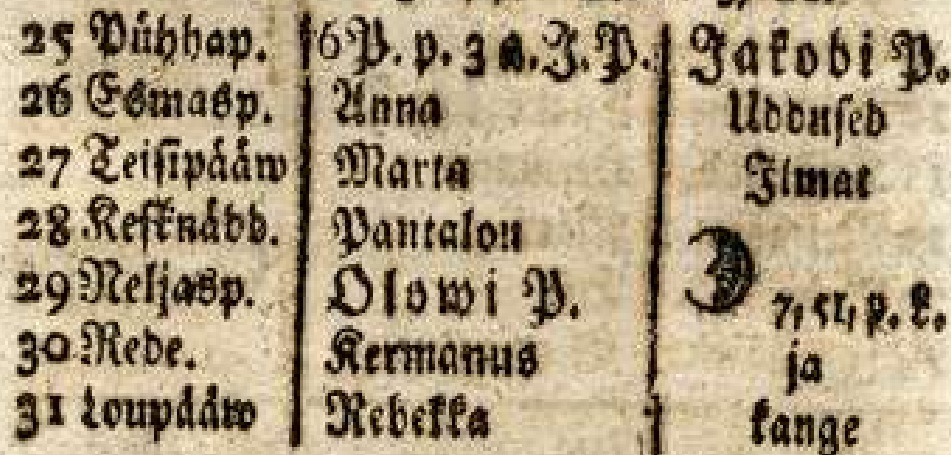 25 Pühhap. 6 P. p. 3 a. J. P. Jakobi P.
26 Esmasp. Anna Uddused
27 Teisipääw Marta Ilmat
28 Kesknädd. Pantalon
29 Neljasp. Olowi P. 7, ël, p. k.
30 Rede. Kermanus ja
31 Loupääw Rebekka kange